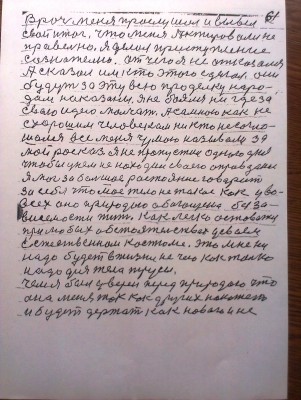 61
Врач меня прослушал и вывел
свой итог, что меня Актировали не
правельно. Я делал приступление
сознательно. от чего я не отказался
Я сказал им: кто этого сделал. они
будут за эту всю проделку наро-
дом наказаны. Я не боялся ни где за
свою идею молчат. А самною как не
схорошим человеком никто не согло-
шался все меня думою называли за
мой расказ я не пропустил одного дня
чтобы у нем не находил своего оправдания
Я мог за большое растояние говорит
за себя что мое тело не такое как у во-
всех оно природою обогощена без за-
висемости жить. Как легко оставату
при любых обстоятельствах до всем
Естественном костюме. Это мне ни
надо будет в жизни не чего как только
надо для тела трусы.
Чем я был уверен перед природою что
она меня так как других накажет
и будет держат как новаго и не